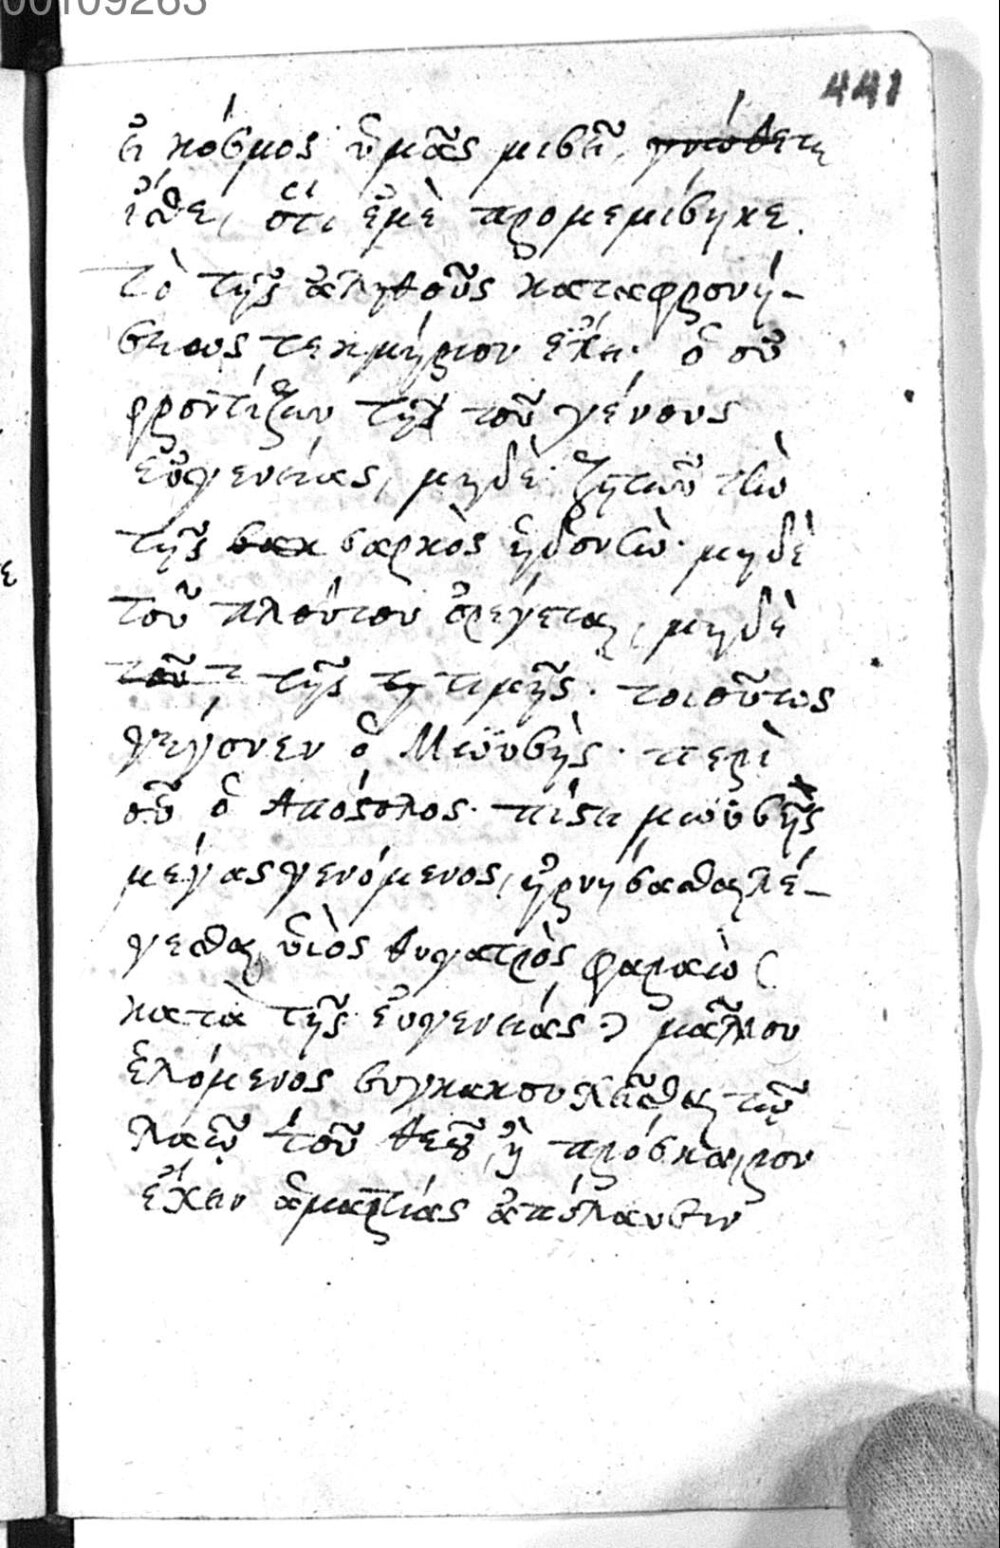 00109263
441
εἰ κόσμος ὑμᾶς μισεῖ, γνώθετε
ἴσθε, ὅτι ἐμὲ προμεμίσηκε.
τὸ τῆς ἀληθοῦς καταφρονή-
σεως τεκμήριον ἔχει· ὁ οὐ
φροντίζων τῆς τοῦ γένους
εὐγενείας, μηδὲ ζητῶν τὴν
τῆς σακ σαρκὸς ἡδονὴν· μηδὲ
τοῦ πλούτου ὀρέγεται, μηδὲ
τοῦ τ τῆς τῃ τιμῆς· τοιοῦτος
γέγονεν ὁ Μωϋσῆς· περὶ
οὗ ὁ Ἀπόστολος· πίστει μωϋσῆς
μέγας γενόμενος, ἠρνήσατο λέ-
γεσθαι υἱὸς θυγατρὸς φαραὼ (
κατὰ τῆς εὐγενείας) μᾶλλον
ἑλόμενος συγκακουχεῖσθαι τῷ
λαῷ τοῦ θεοῦ, ἢ πρόσκαιρον
ἔχειν ἁμαρτίας ἀπόλαυσιν